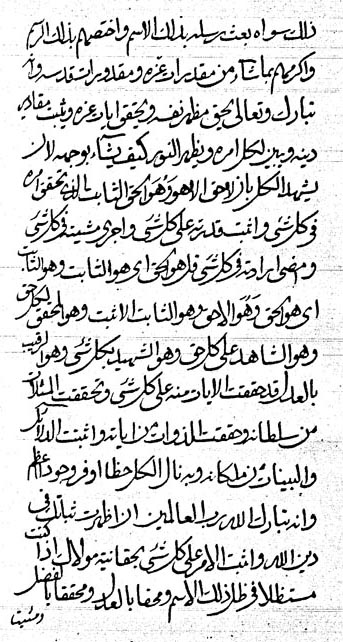 ذلك سواه بعث رسله بذلك الاسم واختصهم بذلك الرسم
واكرمهم بما شاء من مقدرات عزه ومقدورات قدسه وانه
تبارك وتعالى يحق مظهر نفسه ويحقق ايات عزه ويثبت مقادير
دينه ويبين لكل امره ويظهر النور كيف يشاء بوجهه لان
يشهد الكل بان لا حق الا هو وهو الحق الثابت الذي تحقق امره
في كل شئ واثبت قدرته على كل شئ واجرى مشيته في كل شئ
ومضى ارادته في كل شئ قل هو الحق اي هو الثابت وهو الثابت
اي هو الحق وهو الاحق وهو الثابت الاثبت وهو المحقق لكل حق
وهو الشاهد على كل حق وهو الشهيد بكل شئ وهو الرقيب
بالعدل قد حققت الايات منه على كل شئ وتحققت
من سلطانه وحققت الذوات من اياته واثبت الدلائل
والبينات من ملكانه وبه نال الكل حظا اوفر وجودا اعظم
وانه تبارك الله رب العالمين ان اظهرت في
دين الله واثبت الامر على كل شئ بحقانية مولاك اذا كنت
مستظلا في ظل ذلك الاسم ومحقا بالعدل ومحققا بالفضل
ومثبتا